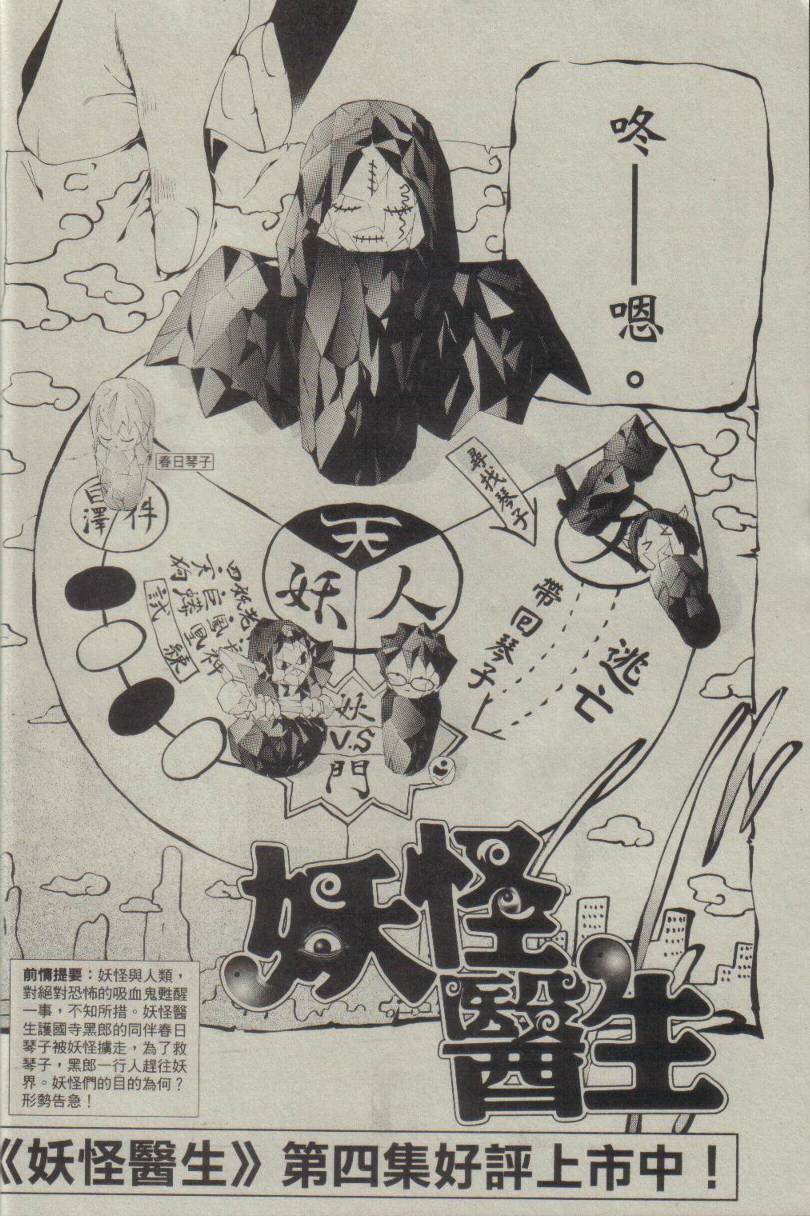 咚——嗯。
春日琴子
白澤
件
天
妖
人
尋找琴子
女
帶回琴子
逃亡
四妖老
鳳凰
巨鱗
天狗
試練
妖
V.S
門
妖怪醫生
前情提要：妖怪與人類，
對絕對恐怖的吸血鬼甦醒
一事，不知所措。妖怪醫
生護國寺黑郎的同伴春日
琴子被妖怪擄走，為了救
琴子，黑郎一行人趕往妖
界。妖怪們的目的為何？
形勢告急！
《妖怪醫生》第四集好評上市中！